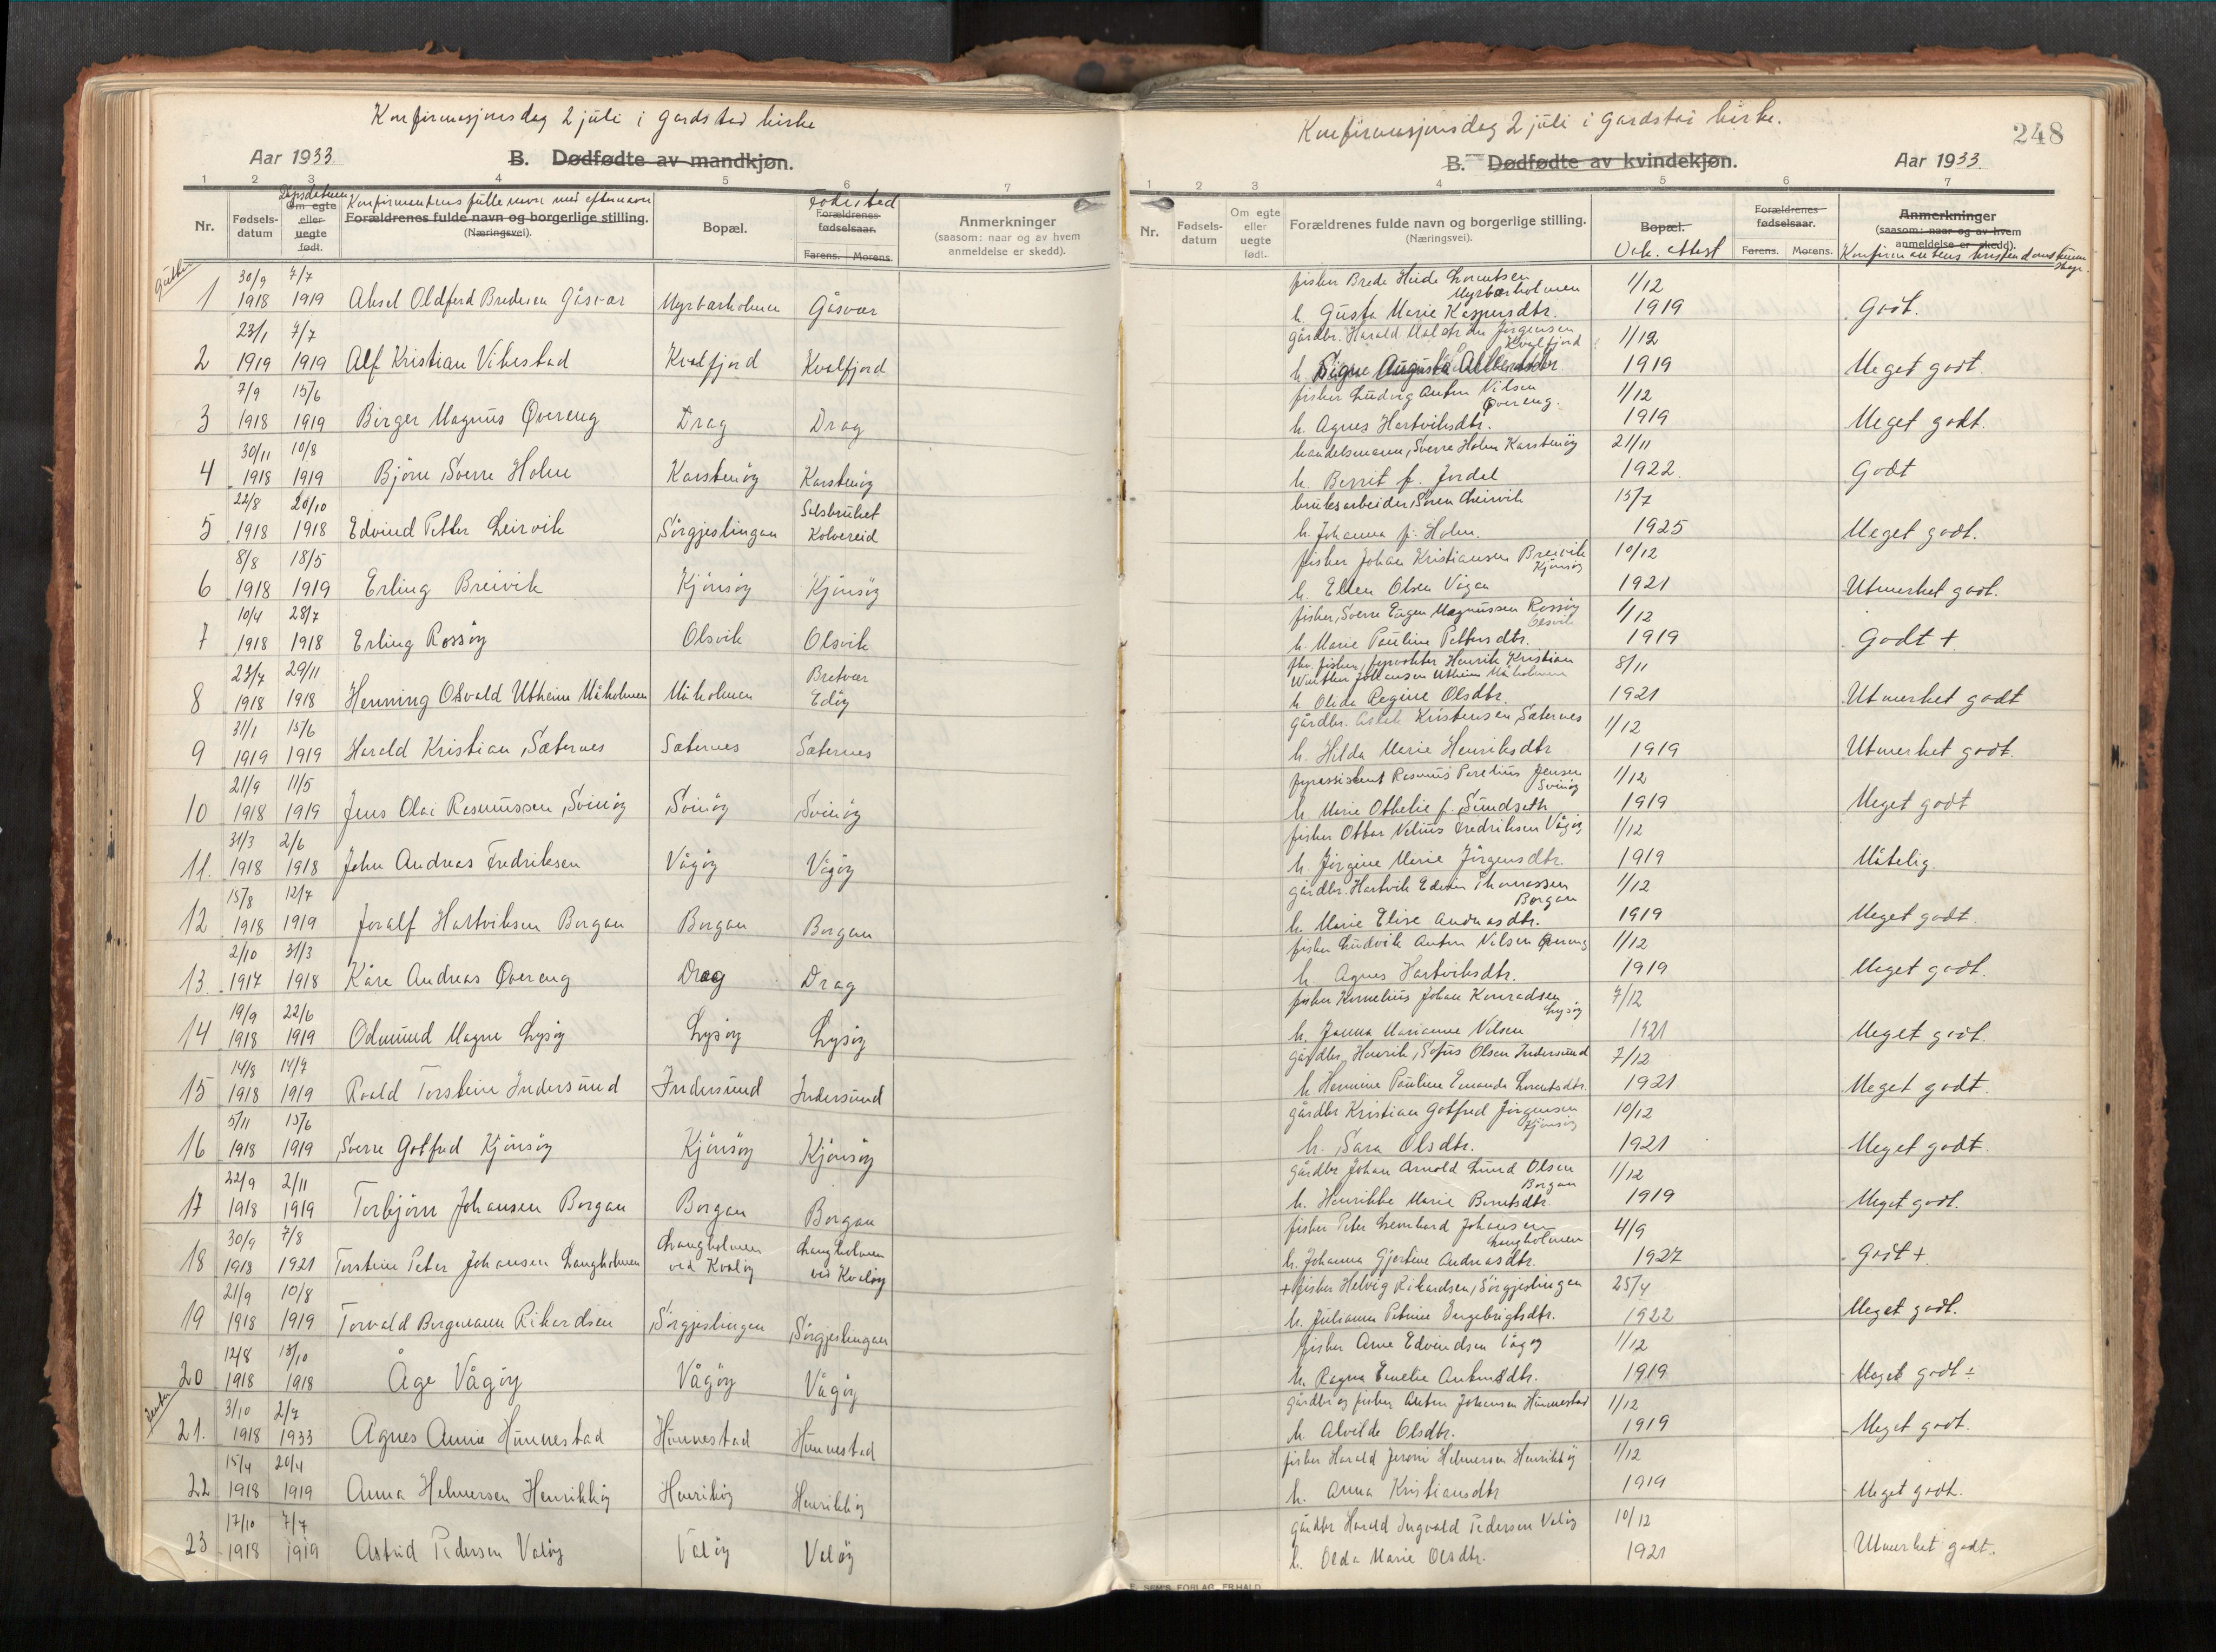 Konfirmasjonsdag 2 juli i Gardstad kirke
Aar 1933
B. Dødfødte av mandkjøn.
1 2 3 4 5 6 7
Nr.
Fødsels-
datum
Dåpsdatum
Om egte
eller
uegte
født.
Konfirmantens fulle navn med efternavn
Forældrenes fulde navn og borgerlige stilling.
(Næringsvei).
Bopæl.
Fødested
Forældrenes
fødselsaar.
Farens. Morens.
Anmerkninger
(saasom: naar og av hvem
anmeldelse er skedd).
Gutter
30/9 7/7
1 1918 1919 Aksel Oldferd Bredesen Gåsvær Myrbærholmen Gåsvær
23/1 7/7
2 1919 1919 Alf Kristian Vikestad Kvalfjord Kvalfjord
7/9 15/6
3 1918 1919 Birger Magnus Øvereng Drag Drag
30/11 10/8
4 1918 1919 Bjørn Sverre Holm Karstenøy Karstenøy
22/8 20/10 Salsbruket
5 1918 1918 Edvind Petter Leirvik Sørgjeslingan Kolvereid
8/8 18/5
6 1918 1919 Erling Breivik Kjønsøy Kjønsøy
10/4 28/7
7 1918 1918 Erling Rossøy Olsvik Olsvik
23/7 29/11 Bretvær
8 1918 1918 Henning Osvald Utheim Måholmen Måholmen Edøy
31/1 15/6
9 1919 1919 Harald Kristian Sæternes Sæternes Sæternes
21/9 11/5
10 1918 1919 Jens Olai Rasmussen Svinøy Svinøy Svinøy
31/3 2/6
11. 1918 1918 John Andreas Fredriksen Vågøy Vågøy
15/8 12/7
12 1918 1919 Joralf Hartviksen Borgan Borgan Borgan
2/10 31/3
13. 1917 1918 Kåre Andreas Øvereng Drag Drag
19/9 22/6
14 1918 1919 Odmund Magne Lysøy Lysøy Lysøy
14/8 14/7
15 1918 1919 Roald Torstein Indersund Indersund Indersund
5/11 15/6
16 1918 1919 Sverre Gotfred Kjønsøy Kjønsøy Kjønsøy
22/9 2/11
17 1918 1919 Torbjørn Johansen Borgan Borgan Borgan
30/9 7/8 Langholmen Langholmen
18 1918 1921 Torstein Peter Johansen Langholmen ved Kvaløy ved Kvaløy
21/9 10/8
19 1918 1919 Torvald Bergmann Rikardsen Sørgjeslingan Sørgjeslingan
12/8 13/10
20 1918 1918 Åge Vågøy Vågøy Vågøy
Jenter
3/10 2/7
21. 1918 1933 Agnes Annie Hunnestad Hunnestad Hunnestad
15/4 20/4
22 1918 1919 Anna Helmersen Henrikkøy Henrikøy Henrikkøy
17/10 7/7
23 1918 1919 Astrid Pedersen Valøy Valøy Valøy
Konfirmasjonsdag 2 juli i Gardstad kirke.
248
B. Dødfødte av kvindekjøn.
Aar 1933.
1 2 3 4 5 6 7
Nr.
Fødsels-
datum
Om egte
eller
uegte
født.
Forældrenes fulde navn og borgerlige stilling.
(Næringsvei).
Bopæl.
Vak. attest
Forældrenes
fødselsaar.
Farens. Morens.
Anmerkninger
(saasom: naar og av hvem
anmeldelse er skedd).
Konfirmantens kristendomskunnskap.
fisker Brede Heide Lorentsen 1/12
Myrbærholmen
h. Gusta Marie Kaspersdtr. 1919 Godt.
gårdbr. Harald Jørgensen 1/12
Kvalfjord
h. Signe Augusta Albertsdtr 1919 Meget godt.
fisker Ludvig Anton Nilsen 1/12
Øvereng.
h. Agnes Hartviksdtr. 1919 Meget godt.
handelsmann, Sverre Holm Karstenøy 21/11
h. Berrit f. Jordal 1922 Godt
bruksarbeider, Søren Leirvik 15/7
h. Johanna f. Holm. 1925 Meget godt.
fisker Johan Kristiansen Breivik 10/12
Kjønsøy
h. Ellen Olsen Vågan 1921 Utmerket godt.
fisker, Sverre Eugen Magnussen Rossøy 1/12
Olsvik
h. Marie Pauline Pettersdtr. 1919 Godt +
fhv. fisker, fyrvokter Henrik Kristian 8/11
Winther Johansen Utheim Måholmen
h. Olida Regine Olsdtr. 1921 Utmerket godt
gårdbr. Kristensen, Sæternes 1/12
h. Hilda Marie Henriksdtr 1919 Utmerket godt.
fyrassistent Rasmus Parelius Jensen 1/12
Svinøy
h Marie Othelie f. Sundseth 1919 Meget godt
fisker Ottar Nelius Fredriksen Vågøy 1/12
h. Jørgine Marie Jørgensdtr. 1919 Måtelig.
gårdbr. Hartvik Edvin Thomassen 1/12
Borgan
h. Marie Elise Andreasdtr. 1919 Meget godt.
fisker Ludvik Anton Nilsen Øvereng 1/12
h. Agnes Hartviksdtr. 1919 Meget godt.
fisker Kornelius Johan Konradsen 7/12
Lysøy
h. Janna Marianne Nilsen 1921 Meget godt.
gårdbr, Henrik, Sofus Olsen Indersund 7/12
h Hermine Pauline Emanda Lorentsdtr. 1921 Meget godt.
gårdbr Kristian Gotfred Jørgensen 10/12
Kjønsøy
h. Sara Olsdtr. 1921 Meget godt.
gårdbr Johan Arnold Lund Olsen 1/12
Borgan
h. Henrikke Marie Berntsdtr. 1919 Meget godt.
fisker Peter Lernhard Johansen 4/9
Langholmen
h. Johanna Gjertine Andreasdtr. 1927 Godt +
+ fisker Helvig Rikardsen, Sørgjeslingan 25/4
h. Julianna Petrine Engebrigtsdtr. 1922 Meget godt.
fisker Arne Edvindsen Vågøy 1/12
h. Ragna Emelie Antonsdtr. 1919 Meget godt ÷
gårdbr og fisker Anton Johansen Hunnestad 1/12
h. Alvilde Olsdtr. 1919 Meget godt.
fisker Harald Jeromi Helmersen Henrikkøy 1/12
h. Anna Kristiansdtr 1919 Meget godt.
gårdbr Harald Ingvald Pedersen Valøy 10/12
h. Olda Marie Olsdtr. 1921 Utmerket godt.
E. SEM'S FORLAG, FR.HALD